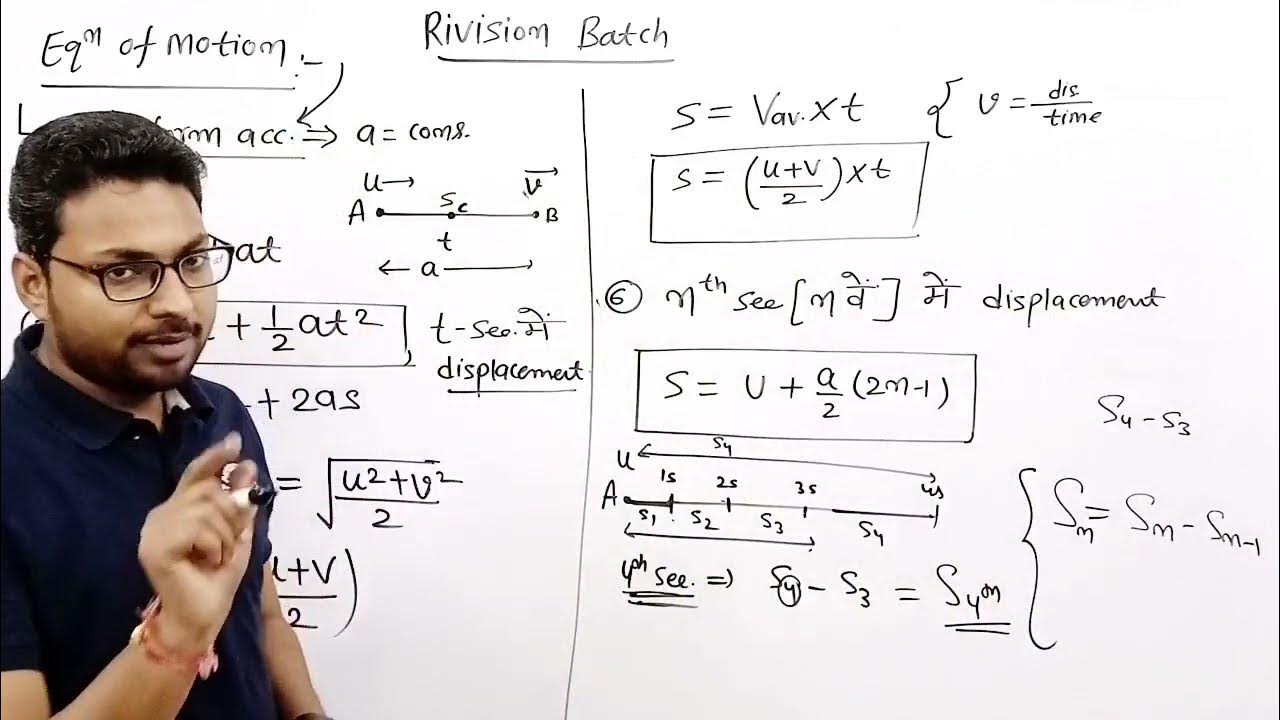 Rivision Batch
Eqⁿ of motion :-
acc. ⇒ a = cons.
u →
v
A
Sc
B
t
← a →
at
+ 1/2 at²
t - See. में
displacement
+ 2as
= √((u²+v²)/2)
+V)
2
S = Vav. × t { v = dis/time
S = (u+v/2) × t
6 nth see [n वें] में displacement
S = U + a/2 (2n-1)
S4 - S3
u
S4
1s 2s 3s 4s
A
S1 S2 S3 S4
4th See. ⇒ S4 - S3 = S4th
Sn = Sn - Sn-1